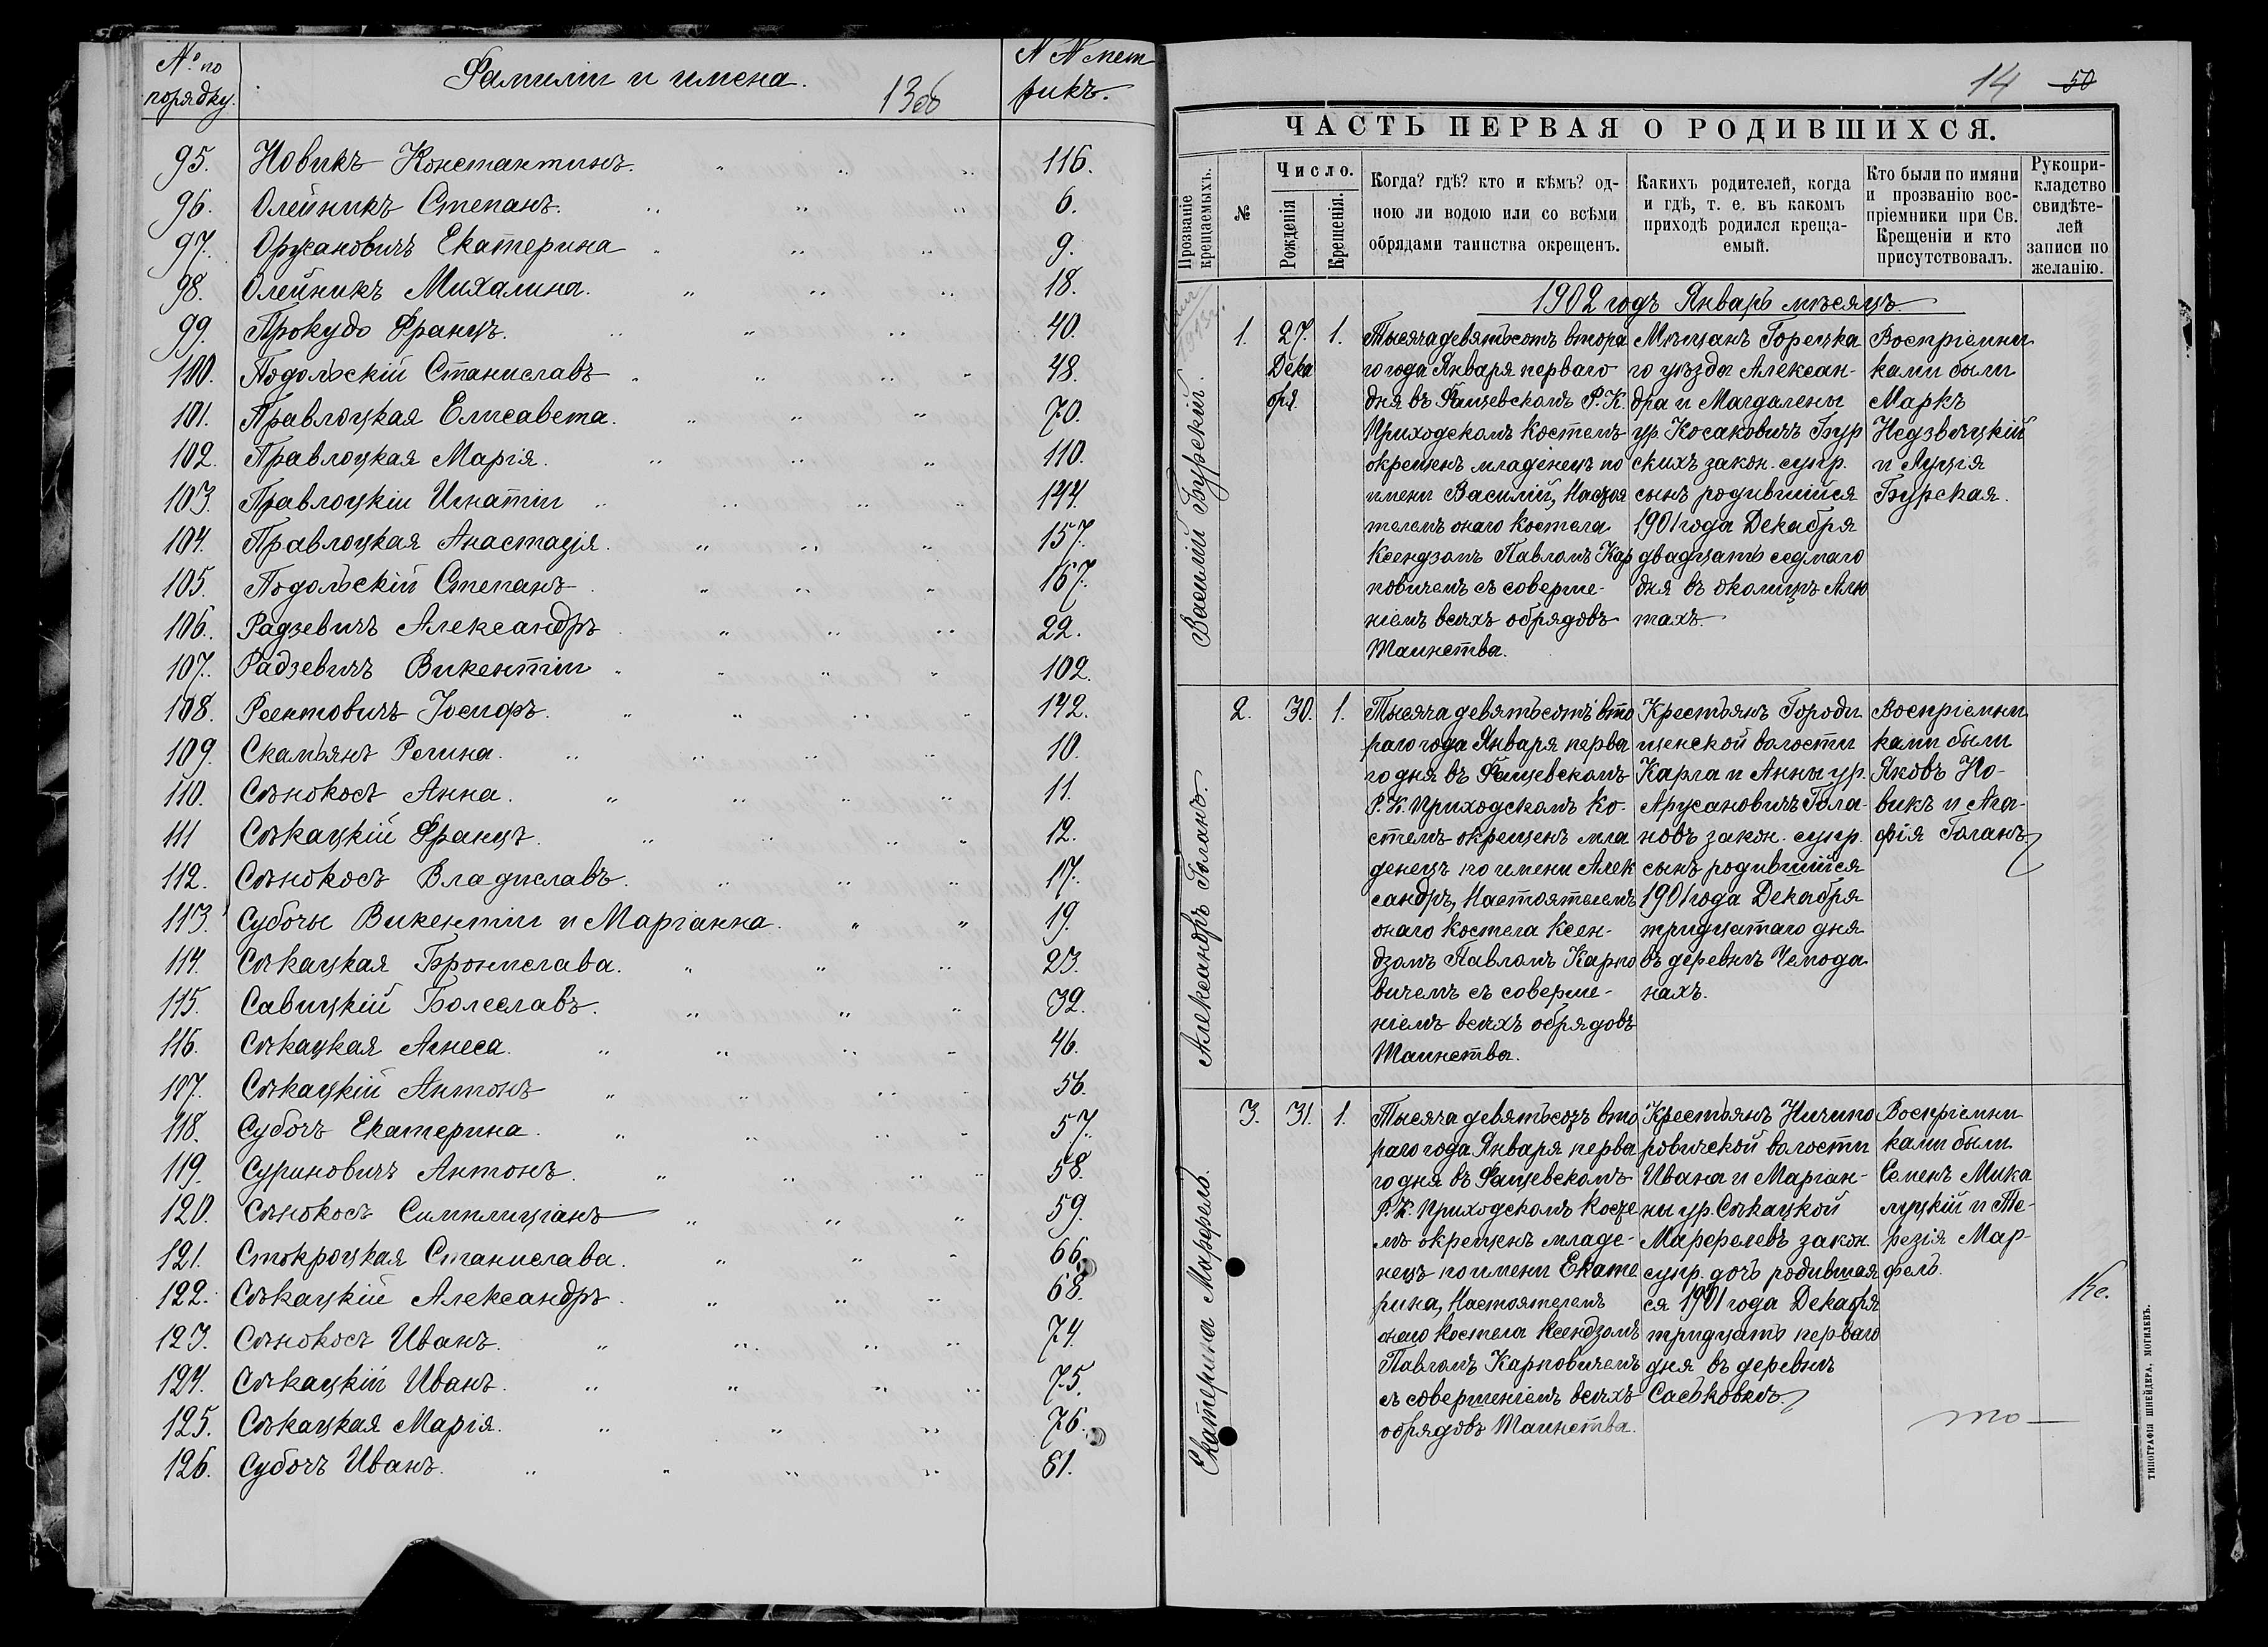 № по порядку.
Фамиліи и имена.
13об
N N мет
рикъ.
95. Новикъ Константинъ. 116.
96. Олейникъ Степанъ. 6.
97. Оружановичъ Екатерина 9.
98. Олейникъ Михалина. 18.
99. Прокудо Францъ. 40.
100. Подольскій Станиславъ 48.
101. Правлоцкая Елисавета. 70.
102. Правлоцкая Марія. 110.
103. Правлоцкій Игнатій 144.
104. Правлоцкая Анастація. 157.
105. Подольскій Степанъ 167.
106. Радзевичъ Александръ 22.
107. Радзевичъ Викентій 102.
108. Реентовичъ Іосифъ. 142.
109. Скамьянъ Регина. 10.
110. Сѣнокосъ Анна. 11.
111 Сѣкацкій Францъ. 12.
112. Сѣнокосъ Владиславъ. 17.
113. Субочы Викентій и Маріанна. 19.
114. Сѣкацкая Бронислава. 23.
115. Савицкій Болеславъ. 32.
116. Сѣкацкая Агнеса. 46.
117. Сѣкацкій Антонъ 56.
118. Субочъ Екатерина. 57.
119. Суриновичъ Антонъ. 58.
120. Сѣнокосъ Симплиціанъ 59.
121. Стокроцкая Станислава. 66.
122. Сѣкацкій Александръ. 68.
123. Сѣнокосъ Иванъ. 74.
124. Сѣкацкій Иванъ. 75.
125. Сѣкацкая Марія. 76.
126. Субочъ Иванъ. 81.
14 50
ЧАСТЬ ПЕРВАЯ О РОДИВШИХСЯ.
Прозваніе крещаемыхъ.
№
Число.
Рожденія
Крещенія.
Когда? гдѣ? кто и кѣмъ? од-
ною ли водою или со всѣми
обрядами таинства окрещенъ.
Какихъ родителей, когда
и гдѣ, т. е. въ какомъ
приходѣ родился креща-
емый.
Кто были по имяни
и прозванію вос-
пріемники при Св.
Крещеніи и кто
присутствовалъ.
Рукопри-
кладство
свидѣте-
лей
записи по
желанію.
1902 годъ Январь мѣсяцъ
Василій Бурскій.
1.
27.
Дека
бря.
1.
Тысяча девятьсотъ втора
го года Января перваго
дня въ Фащевскомъ Р. К.
Приходскомъ Костелѣ
окрещенъ младенецъ по
имени Василій, Настоя
телемъ онаго Костела
Ксендзомъ Павломъ Кар
повичемъ съ соверше-
ніемъ всѣхъ обрядовъ
Таинства.
Мѣщанъ Горецка
го уѣзда Алексан-
дра и Магдалены
ур. Косаковичъ Бур
скихъ закон. супр.
сынъ родившійся
1901 года Декабря
двадцать седмаго
дня въ околицѣ Алю
тахъ.
Воспріемни
ками были
Маркъ
Недзвѣцкій
и Луція
Бурская.
Александръ Голанъ.
2.
30.
1.
Тысяча девятьсотъ вто
раго года Января перва
го дня въ Фащевскомъ
Р. К. Приходскомъ Ко-
стелѣ окрещенъ мла
денецъ по имени Алек
сандръ, Настоятелемъ
онаго костела Ксен-
дзомъ Павломъ Карпо
вичемъ съ соверше-
ніемъ всѣхъ обрядовъ
Таинства.
Крестьянъ Городи
щенской волости
Карла и Анны ур.
Арусановичъ Гола-
новъ закон. супр.
сынъ родившійся
1901 года Декабря
тридцатаго дня
въ деревнѣ Чемода
нахъ.
Воспріемни
ками были
Яковъ Но-
викъ и Ага-
фія Голанъ
Екатерина Марфель.
3.
31.
1.
Тысяча девятьсотъ вто
раго года Января перва
го дня въ Фащевскомъ
Р. К. Приходскомъ Косте
лѣ окрещенъ младе-
нецъ по имени Екате
рина, Настоятелемъ
онаго костела Ксендзомъ
Павломъ Карповичемъ
съ совершеніемъ всѣхъ
обрядовъ Таинства.
Крестьянъ Ничипо
ровичской волости
Ивана и Маріан-
ны ур. Сѣкацкой
Марфелевъ закон.
супр. дочь родившая
ся 1901 года Декабря
тридцать перваго
дня въ деревнѣ
Саськовкѣ.
Воспріемни
ками были
Семенъ Мика
луцкій и Те-
резія Мар-
фель.
Кс.
то
ТИПОГРАФІЯ ШНЕЙДЕРА, МОГИЛЕВЪ.